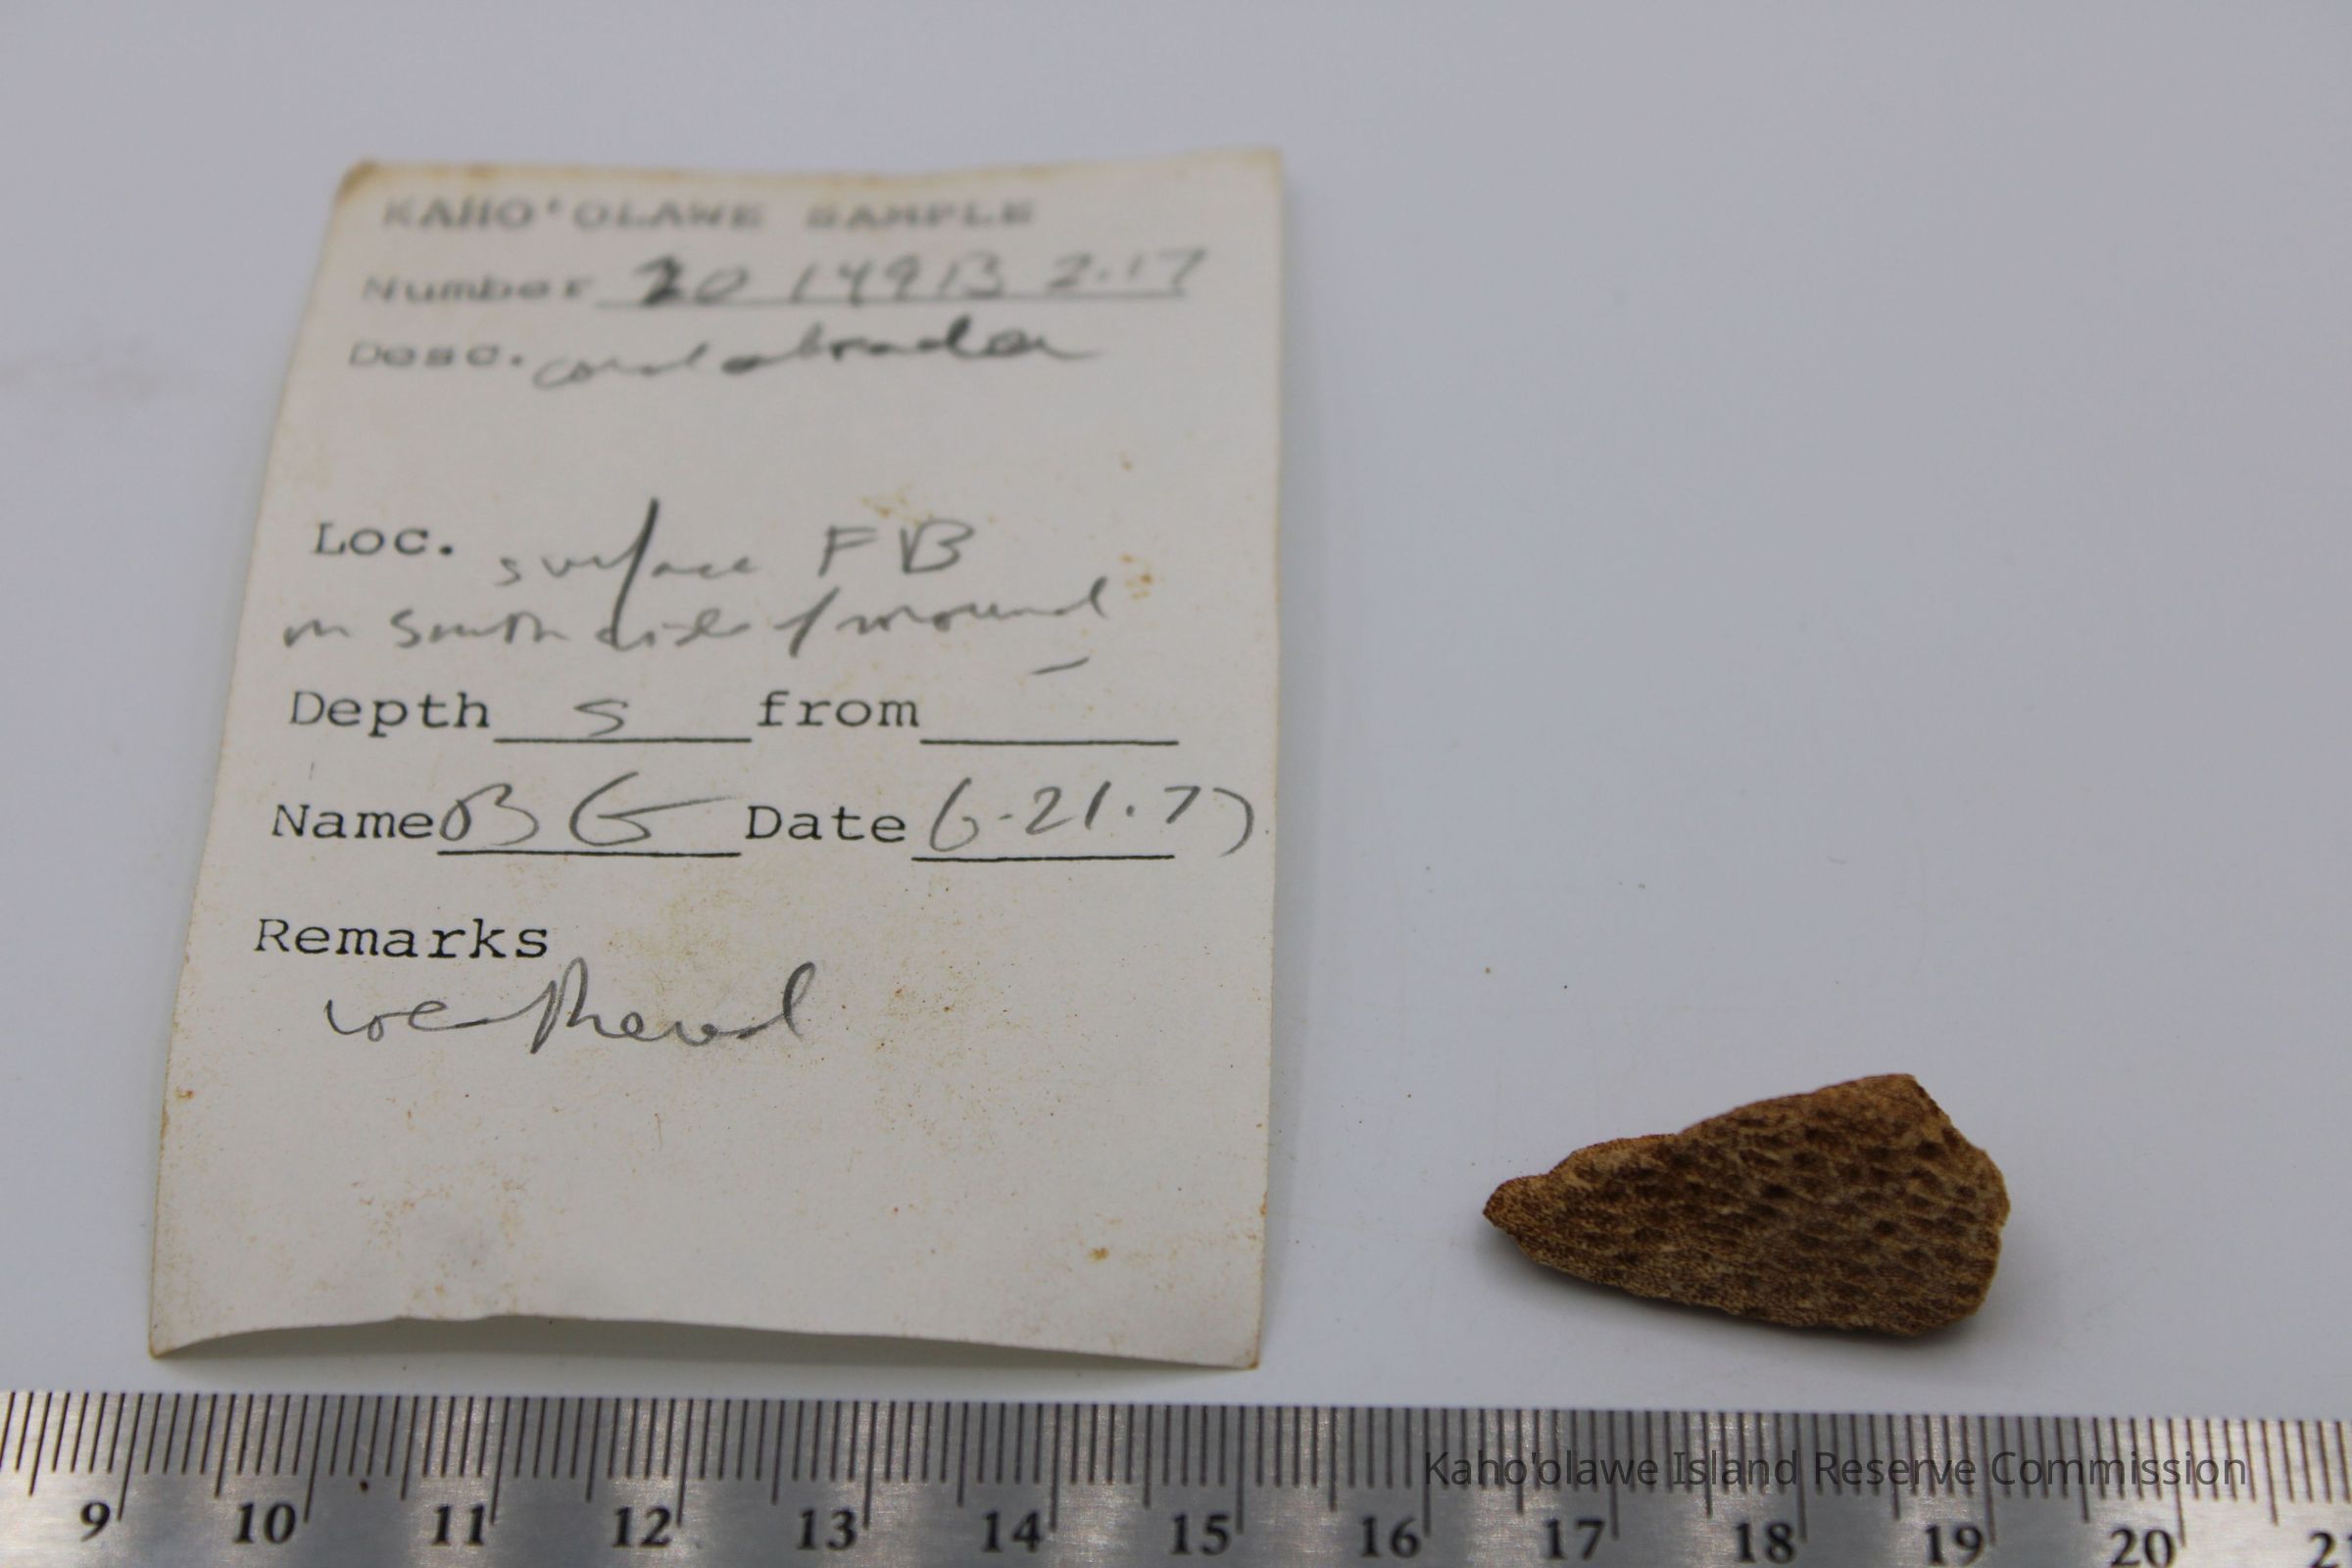 KAHO'OLAWE SAMPLE
Number 20 149B 2.17
Desc. coral abrader
Loc. surface FB
on South side of mound
Depth S from -
Name BG Date 6-21.77
Remarks
weathered
9 10 11 12 13 14 15 16 17 18 19 20 2
Kaho'olawe Island Reserve Commission